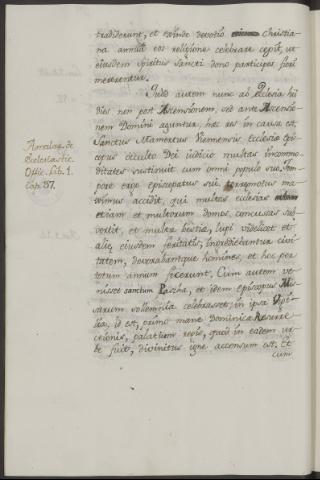 tradiderunt, et exinde devotio Christia-
na annua eos religione celebrare cepit, ut
eiusdem Spiritus Sancti dono participes fieri
mererentur.
Quod autem nunc ab Eclesia his
dies non post Ascensionem, sed ante Ascensio-
nem Domini aguntur, hæc res in causa est.
Sanctus Mamertus Viennensis Ecclesiæ Epi-
scopus occulto Dei iudicio multas incommo-
ditates sustinuit cum omni populo suo. Tem-
pore ergo episcopatus sui terræmotus ma-
ximus accidit, qui multas ecclesias
etiam et multorum domos concussas sub-
vertit, et multæ bestiæ, lupi videlicet et
aliæ eiusdem feritatis, ingrediebantur civi-
tatem, devorabantque homines, et hoc per
totum annum fecerunt. Cum autem ve-
nisset sanctum Pascha, et idem episcopus Mis-
sarum sollemnia celebrasset, in ipsa Vigi-
lia, id est, primo mane Dominicæ Resurre-
ctionis, palatium regis, quod in eadem ur-
be fuit, divinitus igne accensum est. Et
cum
Amalar. de
Ecclesiastic.
Offic. lib. 1.
cap. 37.